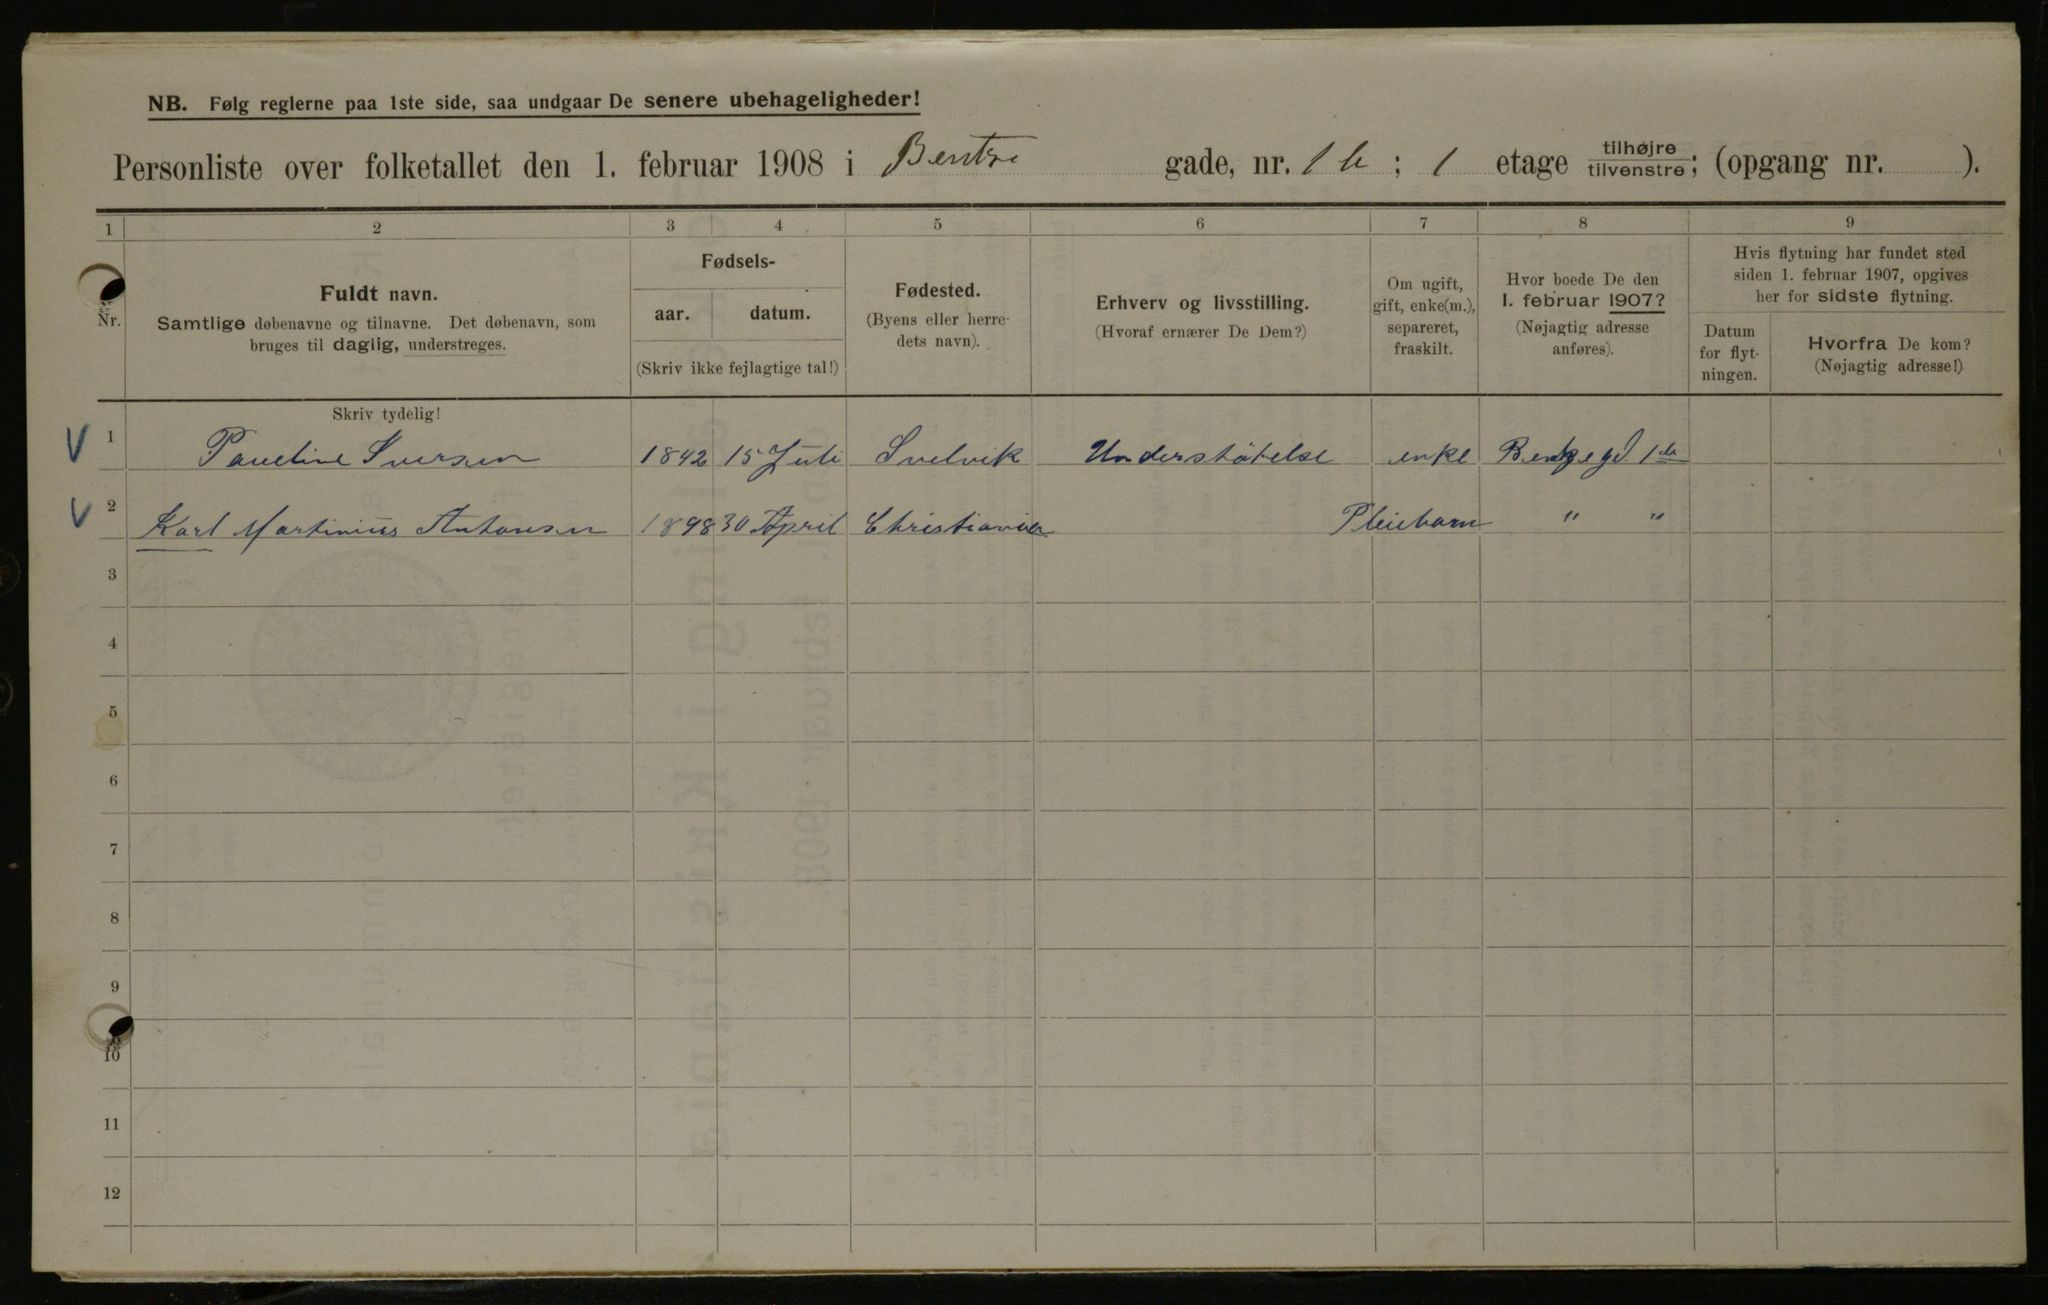 NB. Følg reglerne paa 1ste side, saa undgaar De senere ubehageligheder!
Personliste over folketallet den 1. februar 1908 i Bentse gade, nr. 1 b ; 1 etage tilhøjre/tilvenstre; (opgang nr. ).
1 2 3 4 5 6 7 8 9
Nr.
Fuldt navn.
Samtlige døbenavne og tilnavne. Det døbenavn, som
bruges til daglig, understreges.
Fødsels-
aar. datum.
(Skriv ikke fejlagtige tal!)
Fødested.
(Byens eller herre-
dets navn).
Erhverv og livsstilling.
(Hvoraf ernærer De Dem?)
Om ugift,
gift, enke(m.),
separeret,
fraskilt.
Hvor boede De den
1. februar 1907?
(Nøjagtig adresse
anføres).
Hvis flytning har fundet sted
siden 1. februar 1907, opgives
her for sidste flytning.
Datum
for flyt-
ningen.
Hvorfra De kom?
(Nøjagtig adresse!)
Skriv tydelig!
V 1 Pauline Iversen 1842 15 Juli Svelvik Understøtelse enke gd. 1 b
V 2 Karl Martinius Antonsen 1898 30 April Christiania Pleiebarn " "
3
4
5
6
7
8
9
10
11
12